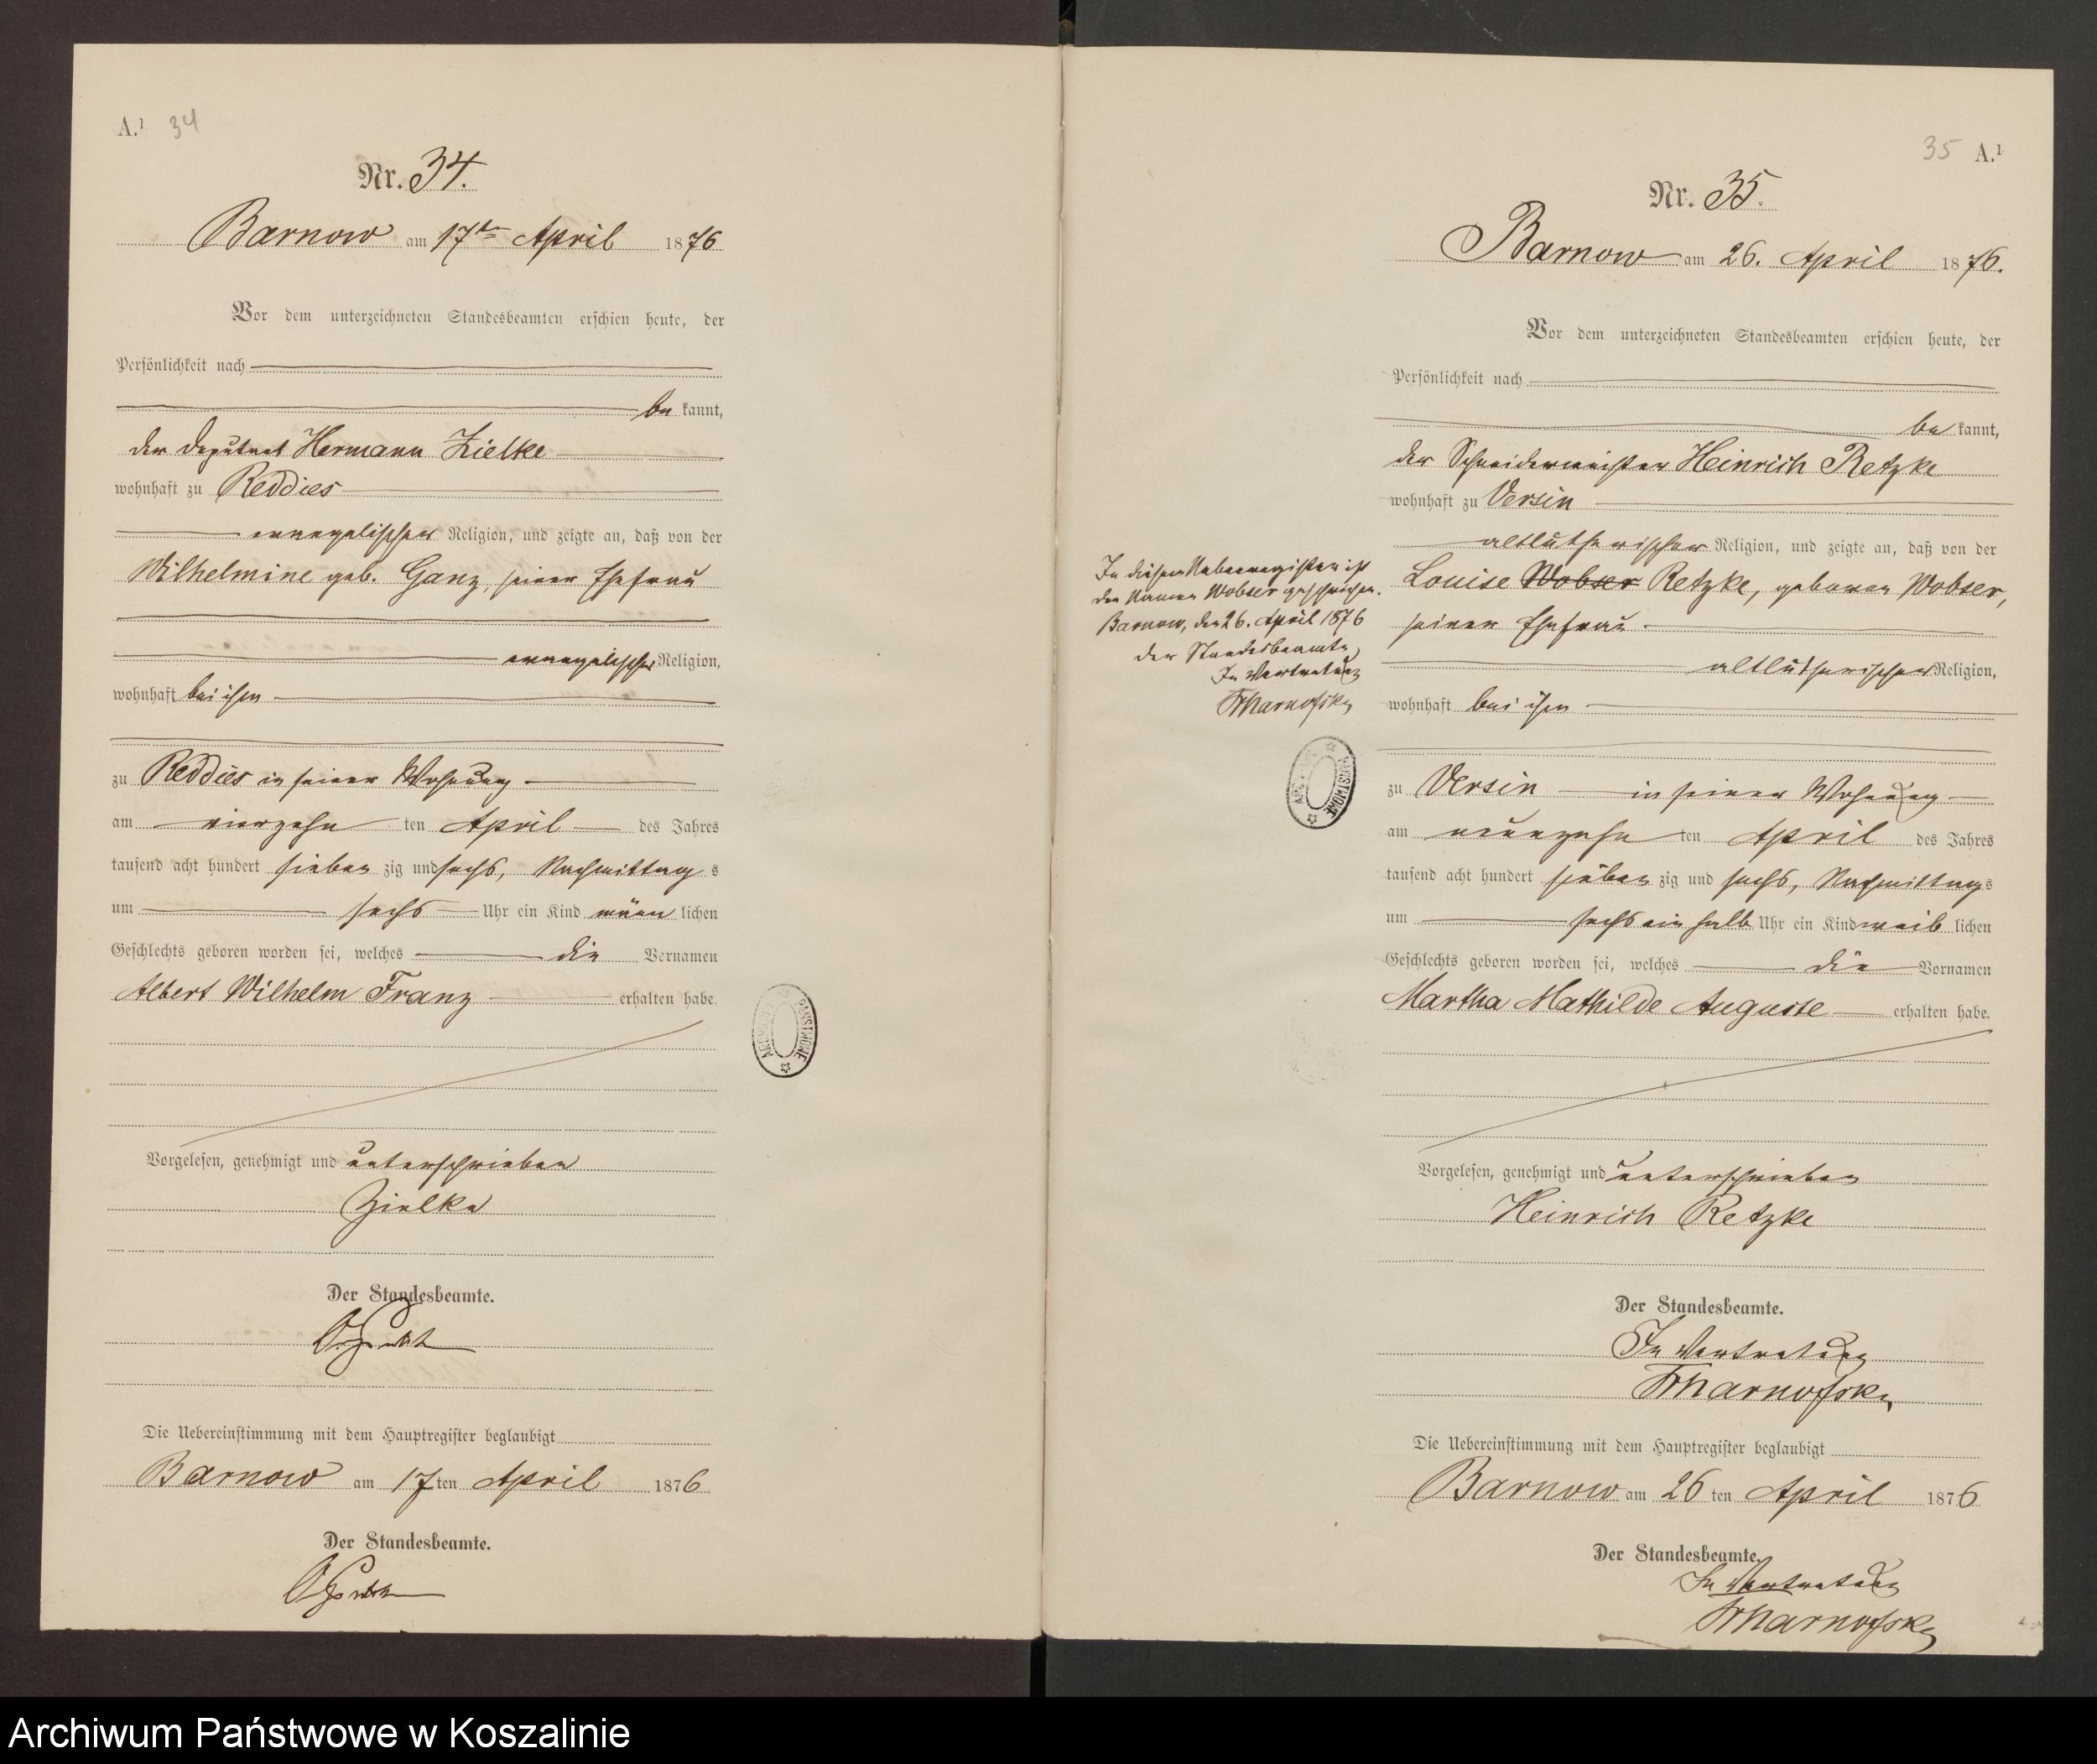 A.¹ 34
Nr. 34.
Barnow am 17ten April 1876
Vor dem unterzeichneten Standesbeamten erschien heute, der
Persönlichkeit nach
bekannt,
der Deputant Hermann Zielke
wohnhaft zu Reddies
evangelischer Religion, und zeigte an, daß von der
Wilhelmine geb. Ganz, seiner Ehefrau
evangelischer Religion,
wohnhaft bei ihm
zu Reddies in seiner Wohnung
am vierzehnten April des Jahres
tausend acht hundert siebenzig und sechs, Nachmittags
um sechs Uhr ein Kind männlichen
Geschlechts geboren worden sei, welches die Vornamen
Albert Wilhelm Franz erhalten habe.
Vorgelesen, genehmigt und unterschrieben
Zielke
Der Standesbeamte.
Die Uebereinstimmung mit dem Hauptregister beglaubigt
Barnow am 17ten April 1876
Der Standesbeamte.
ARCHIWUM PAŃSTWOWE
35 A.¹
Nr. 35.
Barnow am 26. April 1876.
Vor dem unterzeichneten Standesbeamten erschien heute, der
Persönlichkeit nach
bekannt,
der Schneidermeister Heinrich Retzke
wohnhaft zu Versin
altlutherischer Religion, und zeigte an, daß von der
Louise Wobser Retzke, geboren Wobser,
seiner Ehefrau
altlutherischer Religion,
wohnhaft bei ihm
zu Versin in seiner Wohnung
am neunzehnten April des Jahres
tausend acht hundert siebenzig und sechs, Nachmittags
um sechs ein halb Uhr ein Kind weiblichen
Geschlechts geboren worden sei, welches die Vornamen
Martha Mathilde Auguste erhalten habe.
Vorgelesen, genehmigt und unterschrieben
Heinrich Retzke
Der Standesbeamte.
In Vertretung
Die Uebereinstimmung mit dem Hauptregister beglaubigt
Barnow am 26ten April 1876
Der Standesbeamte.
In Vertretung
In diesem Nebenregister ist
der Namen Wobser gestrichen.
Barnow, den 26. April 1876
der Standesbeamte,
In Vertretung
ARCHIWUM PAŃSTWOWE
Archiwum Państwowe w Koszalinie